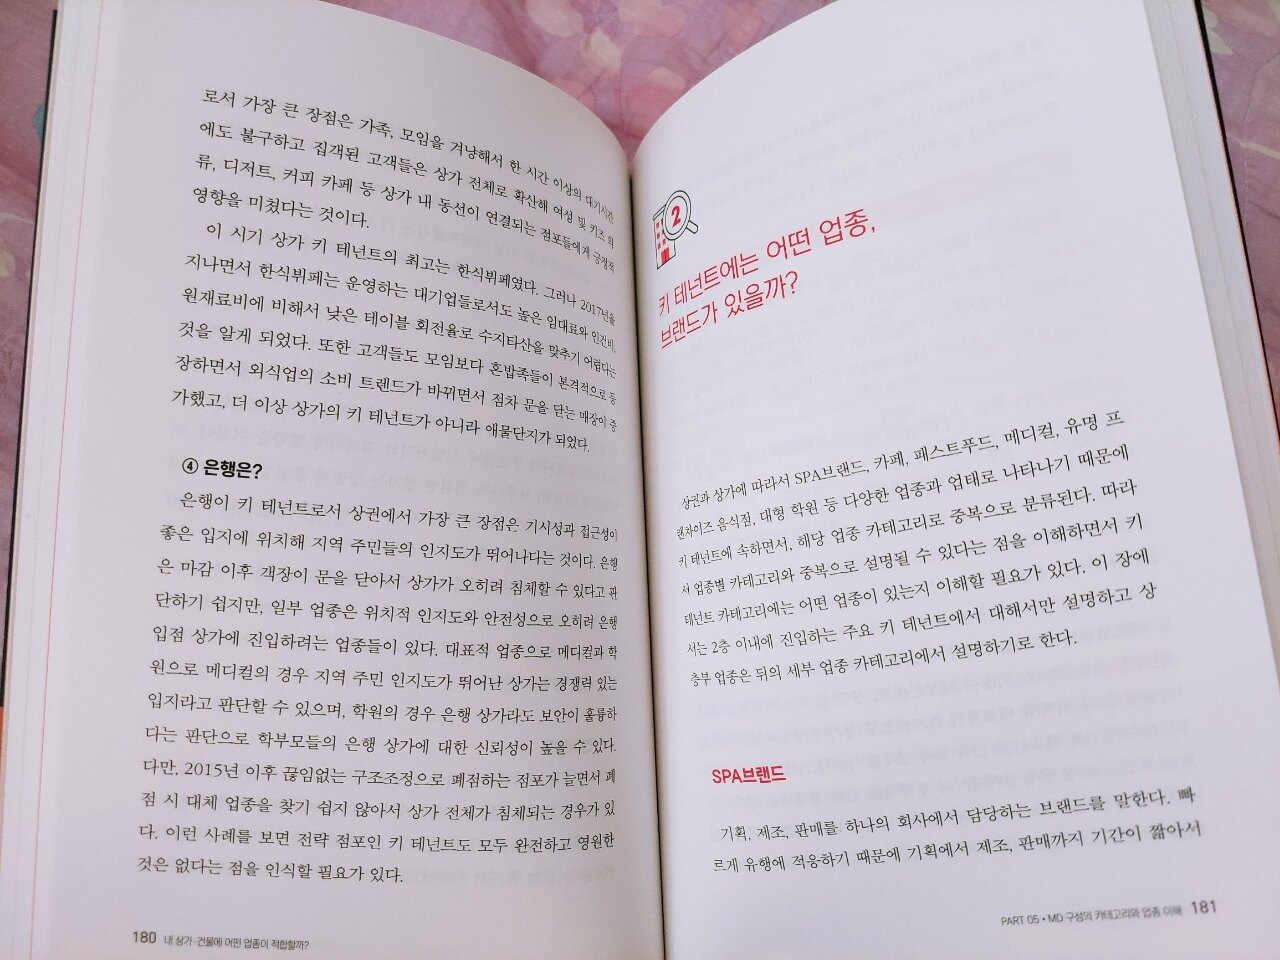 로서 가장 큰 장점은 가족, 모임을 겨냥해서 한 시간 이상의 대기시간
에도 불구하고 집객된 고객들은 상가 전체로 확산해 여성 및 키즈 의
류, 디저트, 커피 카페 등 상가 내 동선이 연결되는 점포들에게 긍정적
영향을 미쳤다는 것이다.
이 시기 상가 키 테넌트의 최고는 한식뷔페였다. 그러나 2017년을
지나면서 한식뷔페는 운영하는 대기업들로서도 높은 임대료와 인건비,
원재료비에 비해서 낮은 테이블 회전율로 수지타산을 맞추기 어렵다는
것을 알게 되었다. 또한 고객들도 모임보다 혼밥족들이 본격적으로 등
장하면서 외식업의 소비 트렌드가 바뀌면서 점차 문을 닫는 매장이 증
가했고, 더 이상 상가의 키 테넌트가 아니라 애물단지가 되었다.
④ 은행은?
은행이 키 테넌트로서 상권에서 가장 큰 장점은 가시성과 접근성이
좋은 입지에 위치해 지역 주민들의 인지도가 뛰어나다는 것이다. 은행
은 마감 이후 객장이 문을 닫아서 상가가 오히려 침체할 수 있다고 판
단하기 쉽지만, 일부 업종은 위치적 인지도와 안전성으로 오히려 은행
입점 상가에 진입하려는 업종들이 있다. 대표적 업종으로 메디컬과 학
원으로 메디컬의 경우 지역 주민 인지도가 뛰어난 상가는 경쟁력 있는
입지라고 판단할 수 있으며, 학원의 경우 은행 상가라도 보안이 훌륭하
다는 판단으로 학부모들의 은행 상가에 대한 신뢰성이 높을 수 있다.
다만, 2015년 이후 끊임없는 구조조정으로 폐점하는 점포가 늘면서 폐
점 시 대체 업종을 찾기 쉽지 않아서 상가 전체가 침체되는 경우가 있
다. 이런 사례를 보면 전략 점포인 키 테넌트도 모두 완전하고 영원한
것은 없다는 점을 인식할 필요가 있다.
180 내 상가·건물에 어떤 업종이 적합할까?
2
키 테넌트에는 어떤 업종,
브랜드가 있을까?
상권과 상가에 따라서 SPA브랜드, 카페, 패스트푸드, 메디컬, 유명 프
랜차이즈 음식점, 대형 학원 등 다양한 업종과 업태로 나타나기 때문에
키 테넌트에 속하면서, 해당 업종 카테고리로 중복으로 분류된다. 따라
서 업종별 카테고리와 중복으로 설명될 수 있다는 점을 이해하면서 키
테넌트 카테고리에는 어떤 업종이 있는지 이해할 필요가 있다. 이 장에
서는 2층 이내에 진입하는 주요 키 테넌트에서 대해서만 설명하고 상
층부 업종은 뒤의 세부 업종 카테고리에서 설명하기로 한다.
SPA브랜드
기획, 제조, 판매를 하나의 회사에서 담당하는 브랜드를 말한다. 빠
르게 유행에 적응하기 때문에 기획에서 제조, 판매까지 기간이 짧아서
PART 05 • MD 구성의 카테고리와 업종 이해 181